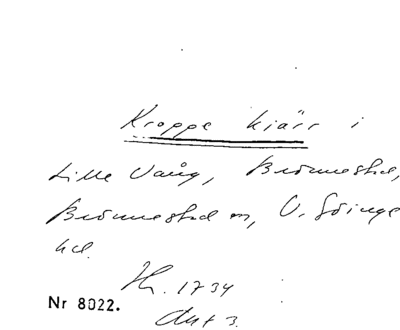 Kroppe kiärr i
Lille Vång, Brönnestad,
Brönnestad sn, V. Göinge
hd.
Hr. 1734
Akt 3.
Nr 8022.